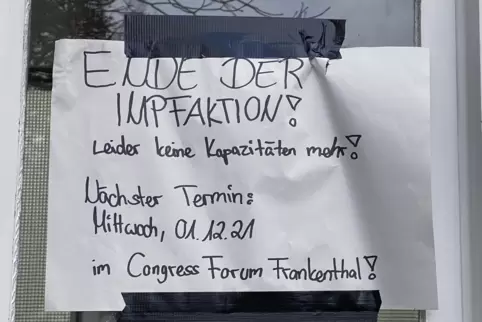 ENDE DER
IMPFAKTION!
Leider keine Kapazitäten mehr!
Nächster Termin:
Mittwoch, 01.12.21
im Congress Forum Frankenthal!